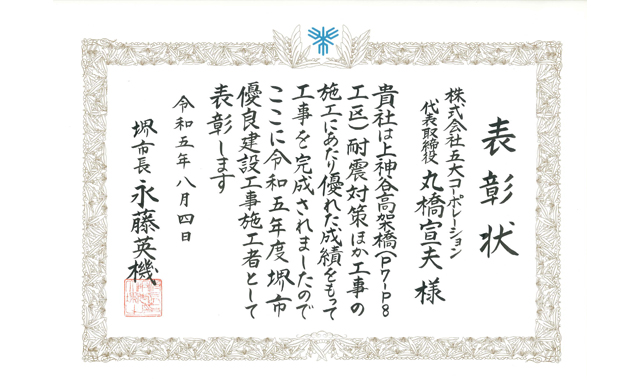 表彰状
株式会社五大コーポレーション
代表取締役 丸橋宣夫 様
貴社は上神谷高架橋(P7-P8
工区)耐震対策ほか工事の
施工にあたり優れた成績をもって
工事を完成されましたので
ここに令和五年度堺市
優良建設工事施工者として
表彰します
令和五年八月四日
堺市長 永藤英機